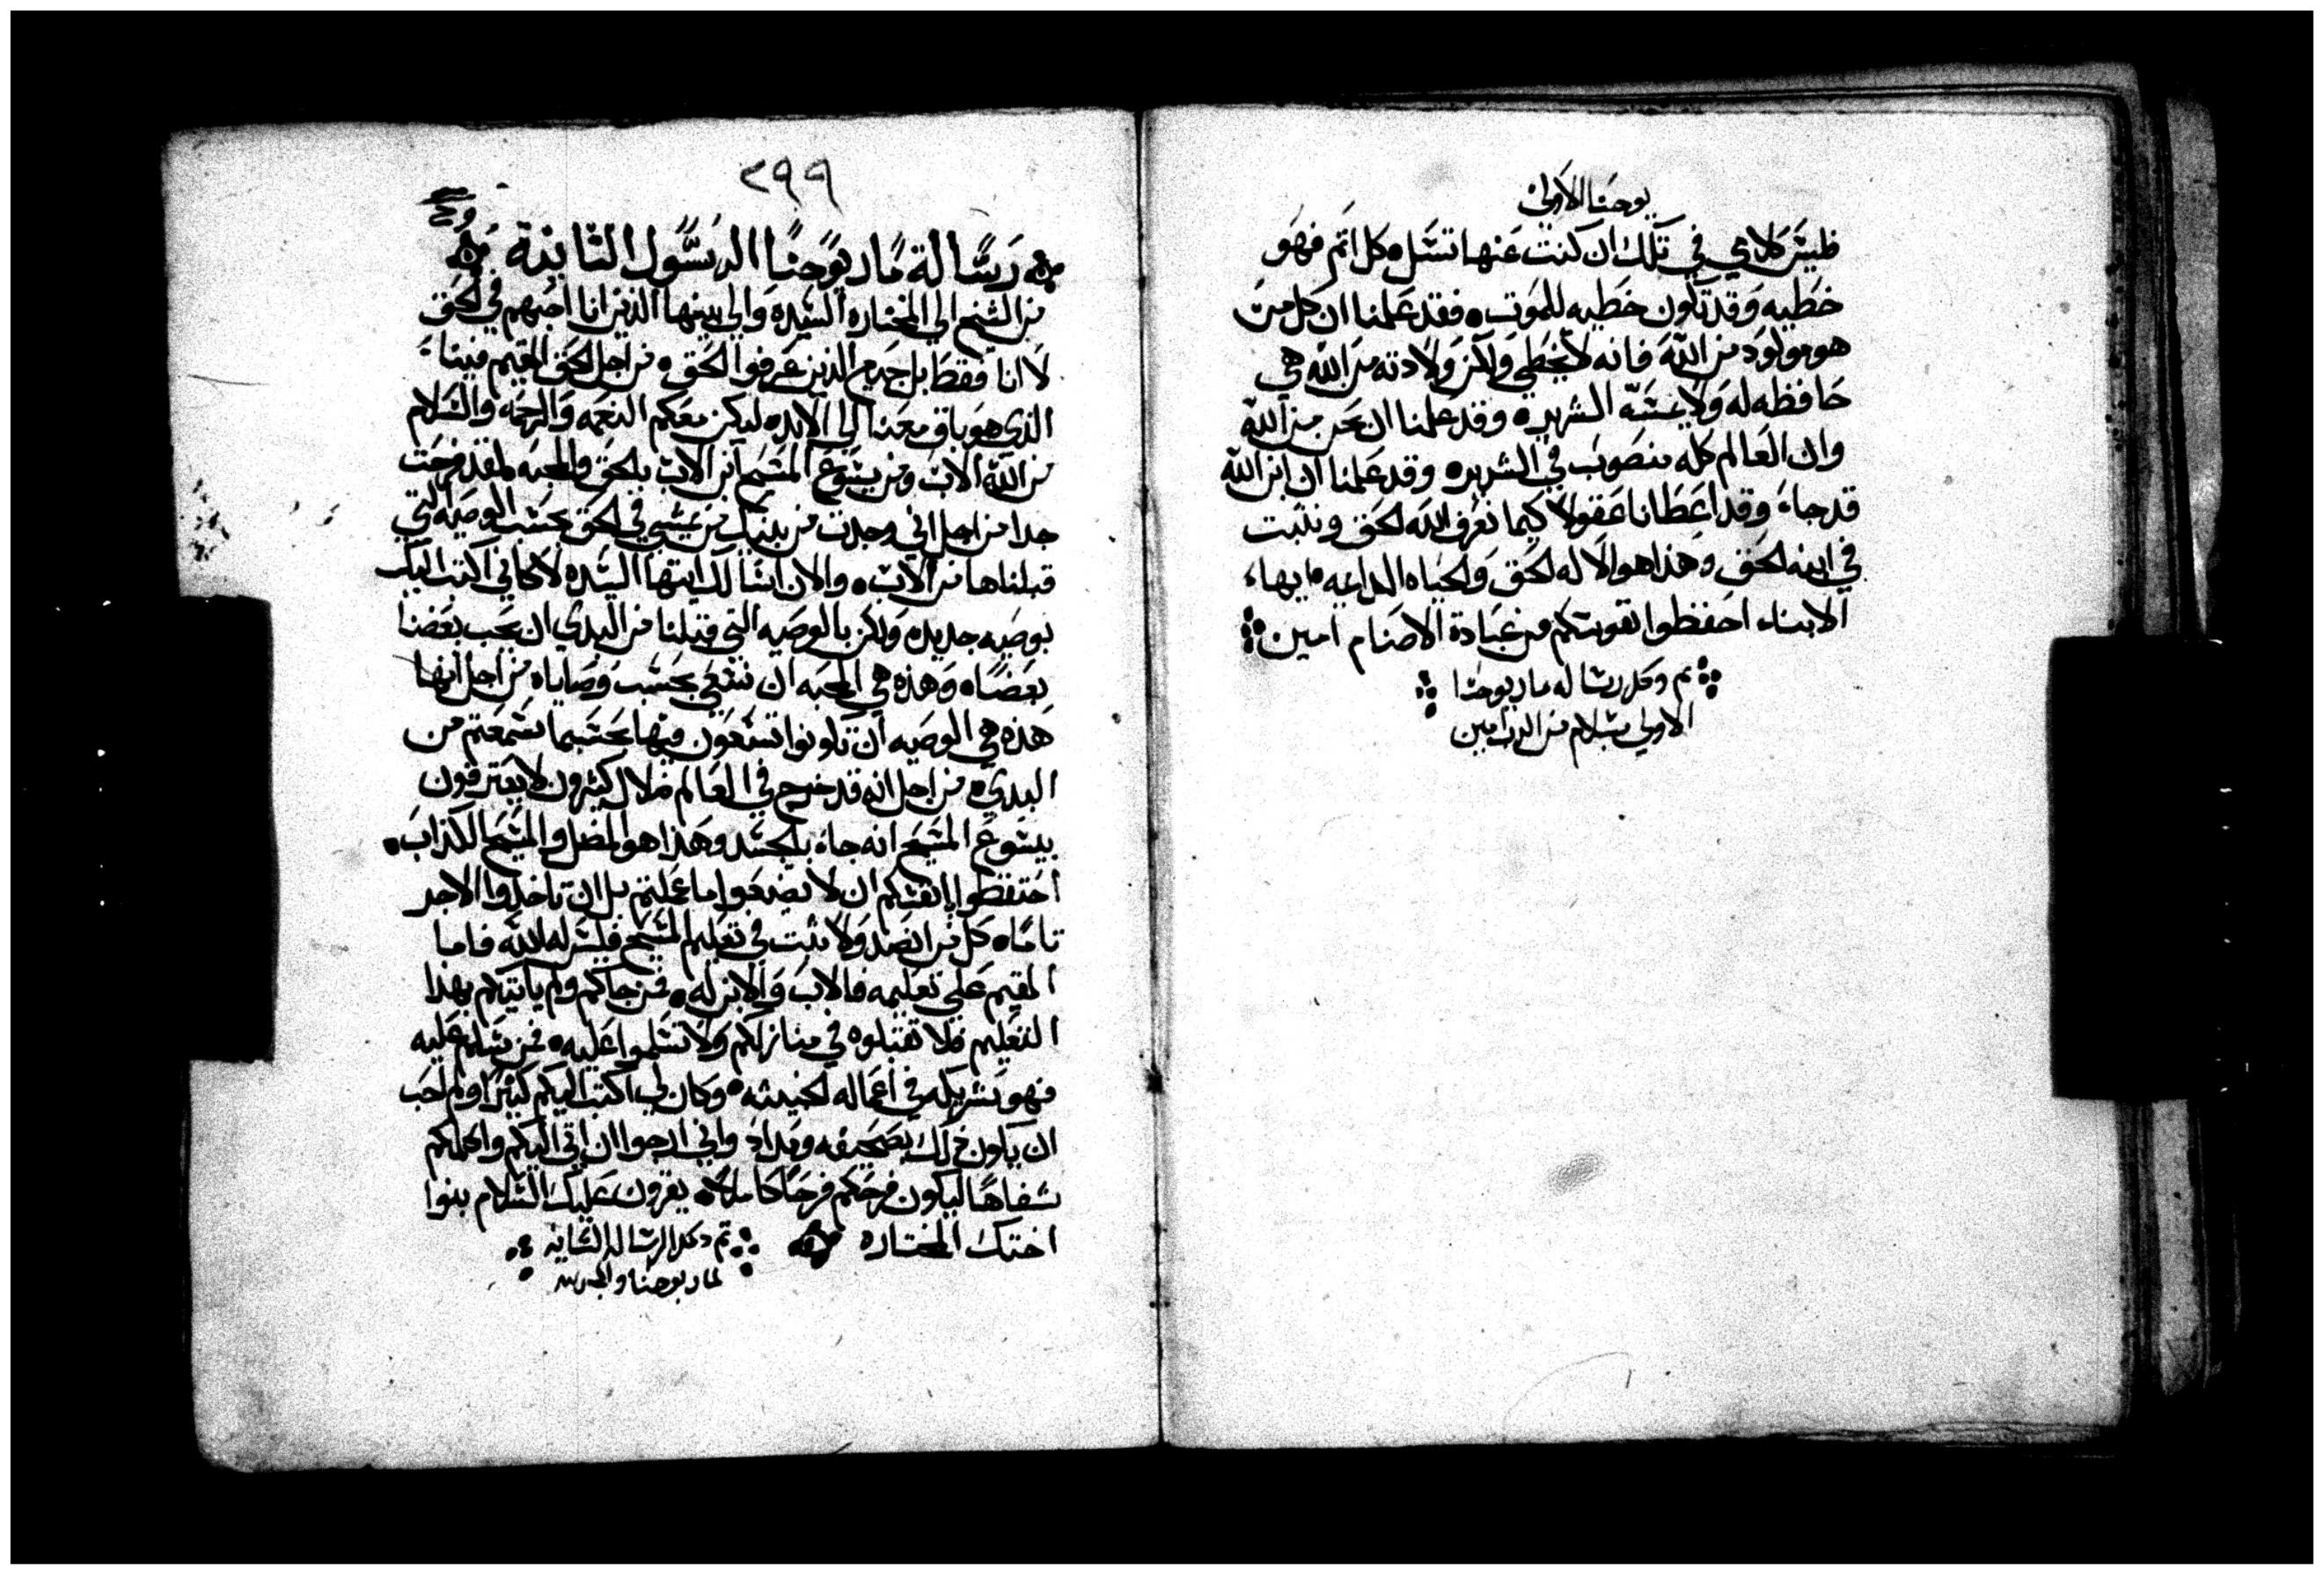 يوحنا الاولى
فليس كلامي في تلك ان كنت عنها تسل كل اثم فهو
خطيه وقد تكون خطيه للموت • فقد علمنا ان كل من
هو مولود من الله فانه لا يخطي ولكن ولادته من الله هي
حافظه له ولا يمسه الشرير • وقد علمنا ان نحن من الله
وان العالم كله منصوب في الشرير • وقد علمنا ان ابن الله
قد جاء وقد اعطانا عقولا كيما نعرف الله الحق ونثبت
في ابنه الحق وهذا هو الاله الحق والحياه الدايمه ايهاء
الابناء احفظوا نفوسكم من عبادة الاصنام امين
تم وكمل رساله مار يوحنا
الاولي بسلام من الرب امين
٢٩٩
رسالة مار يوحنا الرسول الثانية
من الشيخ الي المختاره السيده والي بنيها الذين انا احبهم في الحق
لا انا فقط بل جميع الذين عرفوا الحق • من اجل الحق المقيم فينا
الذي هو باق معنا الي الابد • ليكن معكم النعمه والرحمه والسلام
من الله الاب ومن يسوع المسيح ابن الاب بالحق والمحبه لقد فرحت
جدا من اجل اني وجدت من بنيك من يمشي في الحق بحسب الوصيه التي
قبلناها من الاب • والان اسا لك ايتها السيده لا كاني اكتب اليك
بوصيه جديده ولكن بالوصيه التي قبلنا من البدي ان يحب بعضنا
بعضا • وهذه هي المحبه ان نسعي بحسب وصاياه من اجل انها
هذه هي الوصيه ان تكونوا تسعون فيها بحسبما سمعتم من
البدي • من اجل انه قد خرج في العالم ضلال كثيرون لا يعترفون
بيسوع المسيح انه جاء بالجسد وهذا هو المضل والمسيح الكذاب •
احتفظوا بانفسكم ان لا تضيعوا ما عملتم بل ان تاخذوا الاجر
تاما • كل من انصد ولا يثبت في تعليم المسيح فليس له الله فاما
المقيم علي تعليمه فالاب والابن له • فمن جاكم ولم ياتيكم بهذا
التعليم فلا تقبلوه في منازلكم ولا تسلموا عليه • فمن يسلم عليه
فهو شريكه في اعماله الخبيثه • وكان لي اكتب اليكم كثيرا ولم احب
ان يكون ذلك بصحيفه ومداد واني ارجوا ان اتي اليكم واكلمكم
شفاها ليكون فرحكم فرحا كاملا • يقرون عليك السلام بنوا
اختك المختاره
تم وكمل الرساله الثانيه
لمار يوحنا والمجد لله